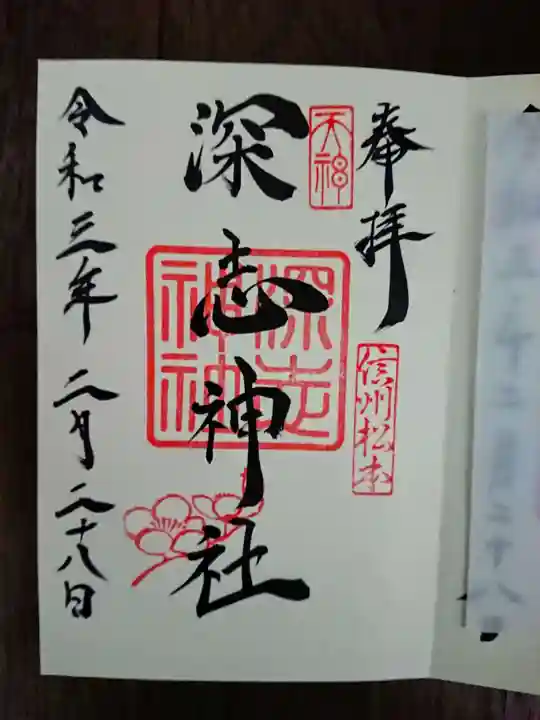 奉拝
天神
信州松本
深志神社
深志神社
令和三年二月二十八日